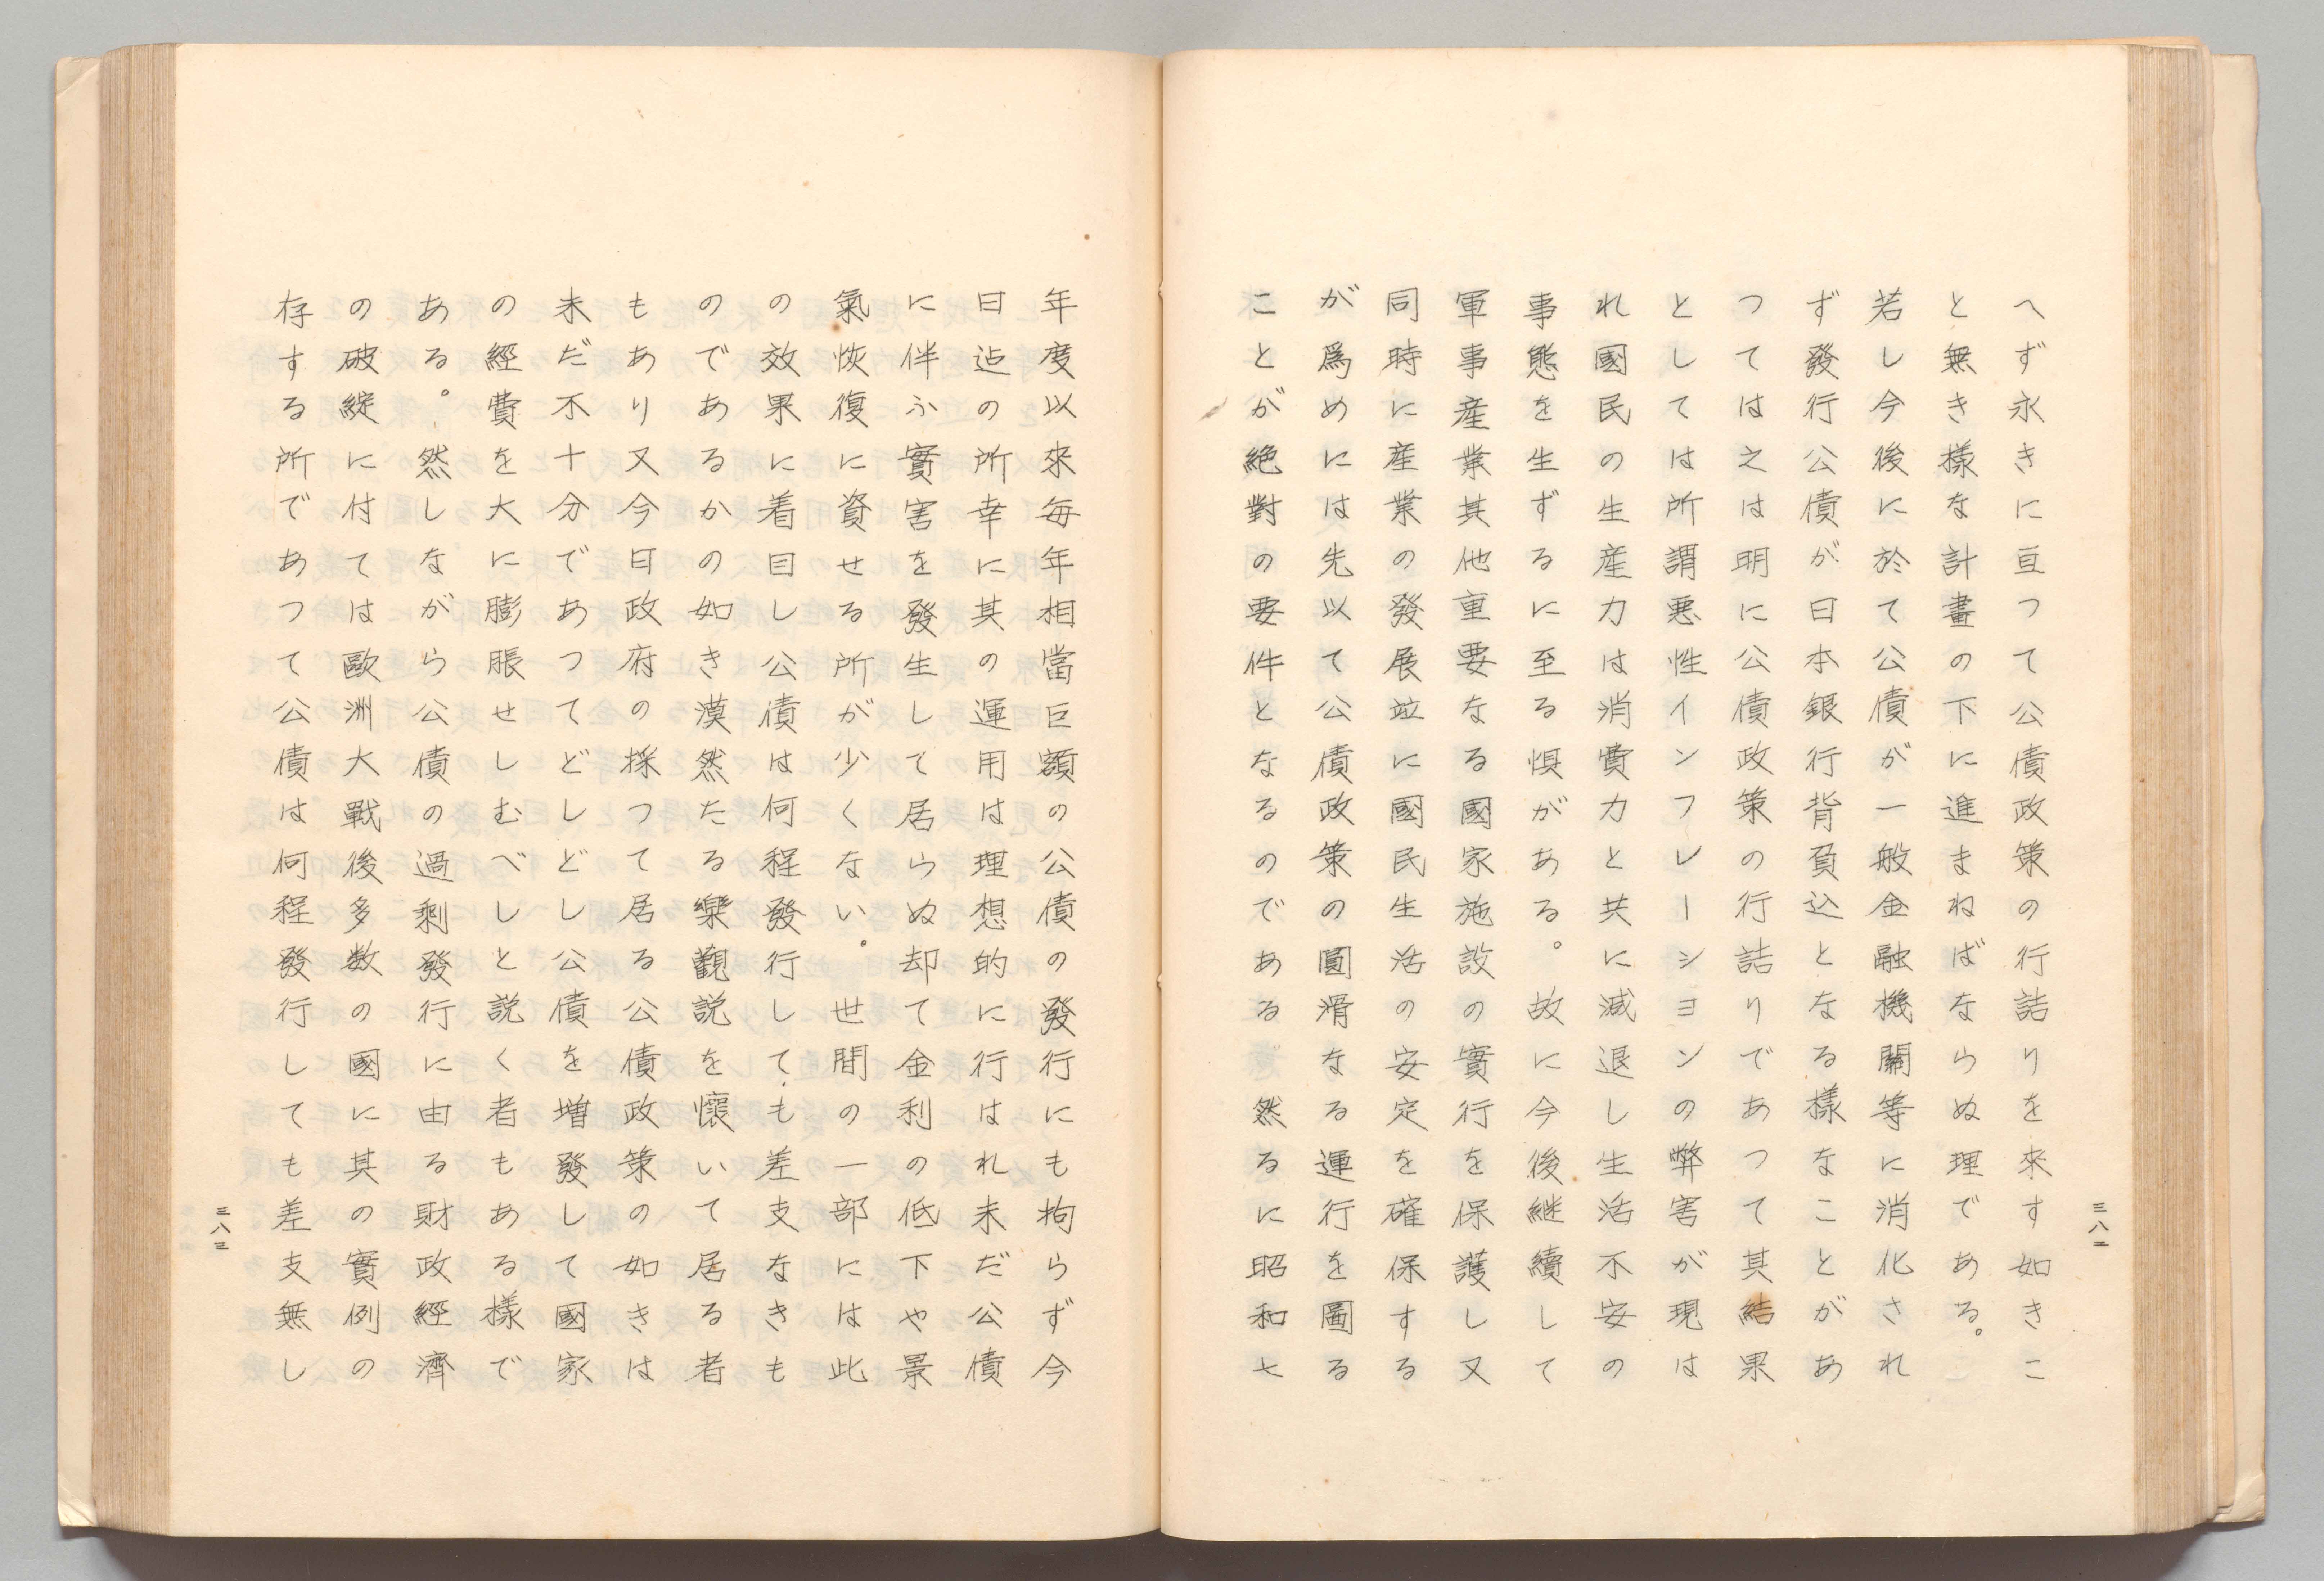 へず永きに亘つて公債政策の行詰りを來す如きこ
と無き樣な計畫の下に進まねばならぬ理である。
若し今後に於て公債が一般金融機關等に消化され
ず發行公債が日本銀行背負込となる樣なことがあ
つては之は明に公債政策の行詰りであつて其結果
としては所謂悪性インフレーションの弊害が現は
れ國民の生産力は消費力と共に減退し生活不安の
事態を生ずるに至る惧がある。故に今後継續して
軍事産業其他重要なる國家施設の實行を保護し又
同時に産業の發展竝に國民生活の安定を確保する
が爲めには先以て公債政策の圓滑なる運行を圖る
ことが絶對の要件となるのである然るに昭和七
三八二
年度以來毎年相當巨額の公債の發行にも拘らず今
日迠の所幸に其の運用は理想的に行はれ未だ公債
に伴ふ實害を發生して居らぬ却て金利の低下や景
氣恢復に資せる所が少くない。世間の一部には此
の效果に着目し公債は何程發行しても差支なきも
のであるかの如き漠然たる樂觀説を懷いて居る者
もあり又今日政府の採つて居る公債政策の如きは
未だ不十分であつてどしどし公債を増發して國家
の經費を大に膨脹せしむべしと説く者もある樣で
ある。然しながら公債の過剰發行に由る財政經濟
の破綻に付ては歐洲大戰後多数の國に其の實例の
存する所であつて公債は何程發行しても差支無し
三八三